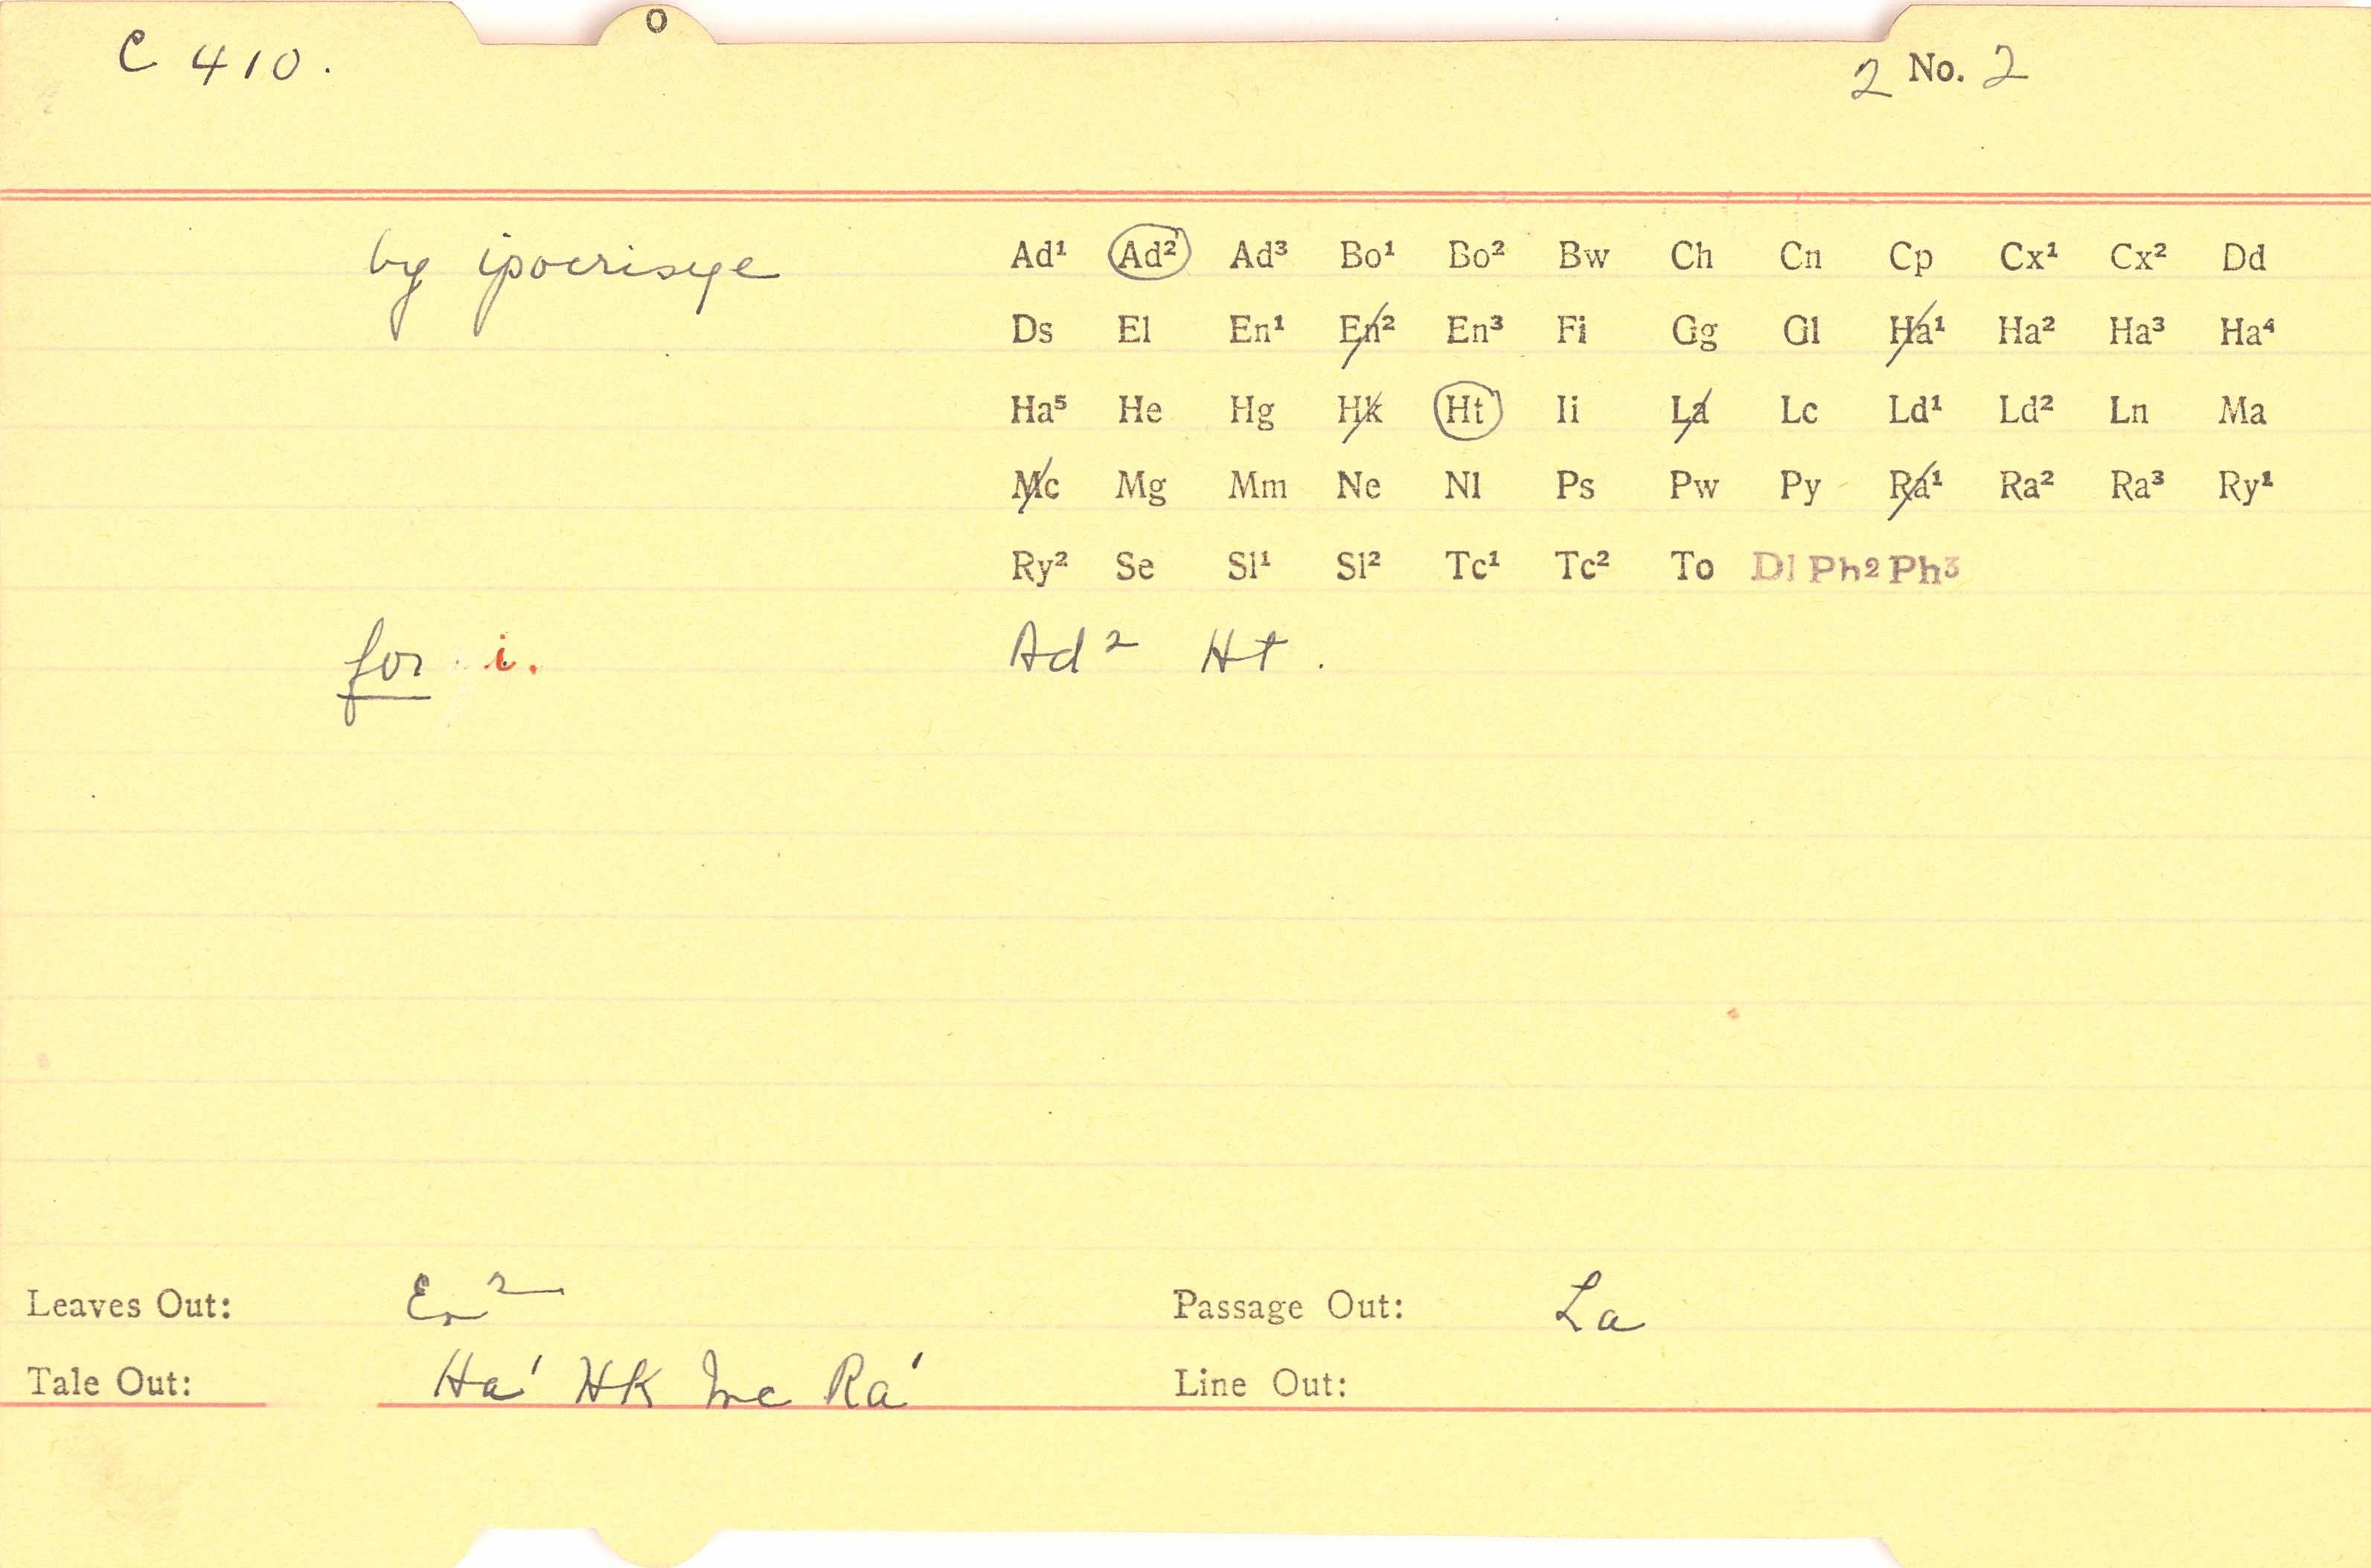 o
C 410.
2 No. 2
by ipocrisye
Ad¹ Ad² Ad³ Bo¹ Bo² Bw Ch Cn Cp Cx¹ Cx² Dd
Ds El En¹ En² En³ Fi Gg Gl Ha¹ Ha² Ha³ Ha⁴
Ha⁵ He Hg Hk Ht Ii La Lc Ld¹ Ld² Ln Ma
Mc Mg Mm Ne Nl Ps Pw Py Ra¹ Ra² Ra³ Ry¹
Ry² Se Sl¹ Sl² Tc¹ Tc² To Dl Ph2 Ph3
for i. Ad² Ht.
Leaves Out: En² Passage Out: La
Tale Out: Ha¹ Hk Mc Ra¹ Line Out: